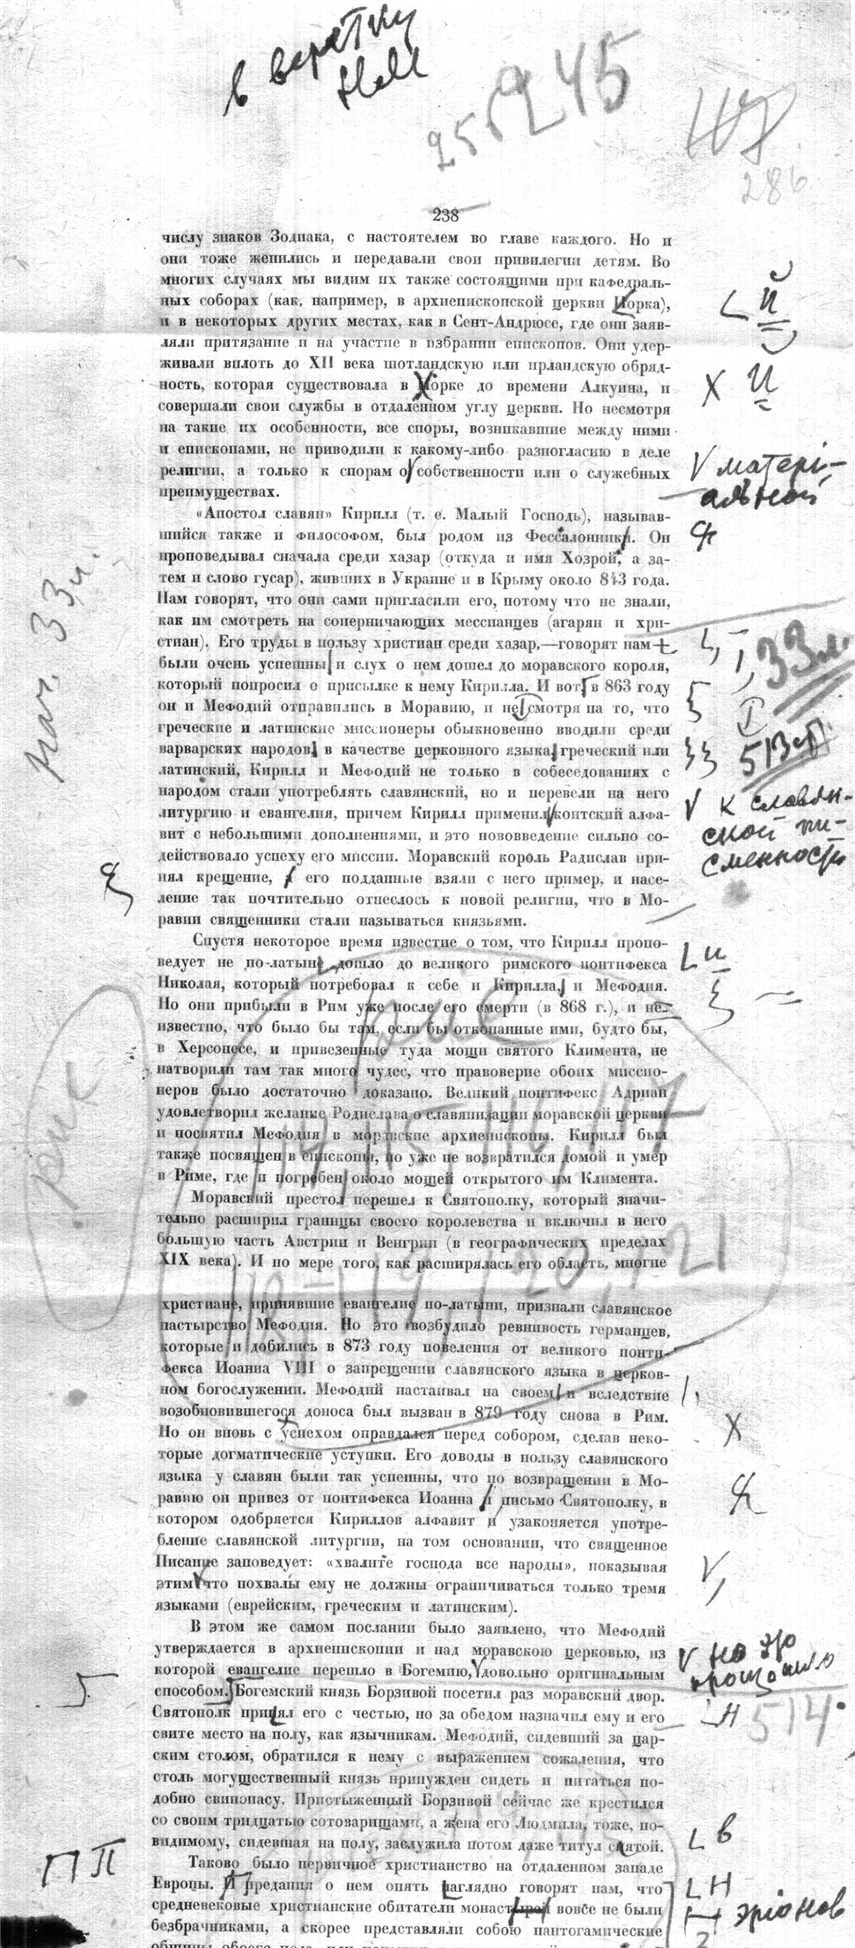 в верстку
255 245
286
238
числу знаков Зодиака, с настоятелем во главе каждого. Но и
они тоже женились и передавали свои привилегии детям. Во
многих случаях мы видим их также состоящими при кафедраль-
ных соборах (как, например, в архиепископской церкви Иорка),
и в некоторых других местах, как в Сент-Андрюсе, где они заяв-
ляли притязание и на участие в избрании епископов. Они удер-
живали вплоть до XII века шотландскую или ирландскую обряд-
ность, которая существовала в Иорке до времени Алкуина, и
совершали свои службы в отдаленном углу церкви. Но несмотря
на такие их особенности, все споры, возникавшие между ними
и епископами, не приводили к какому-либо разногласию в деле
религии, а только к спорам о собственности или о служебных
V матері-
альной
преимуществах.
«Апостол славян» Кирилл (т. е. Малый Господь), называв-
шийся также и философом, был родом из Фессалонники. Он
проповедывал сначала среди хазар (откуда и имя Хозрой, а за-
тем и слово гусар), живших в Украине и в Крыму около 843 года.
Нам говорят, что они сами пригласили его, потому что не знали,
как им смотреть на соперничающих мессианцев (агарян и хри-
стиан). Его труды в пользу христиан среди хазар,—говорят нам—
были очень успешны и слух о нем дошел до моравского короля,
который попросил о присылке к нему Кирилла. И вот, в 863 году
нач. 33 л.
33 л.
он и Мефодий отправились в Моравию, и не смотря на то, что
греческие и латинские миссионеры обыкновенно вводили среди
варварских народов, в качестве церковного языка, греческий или
латинский, Кирилл и Мефодий не только в собеседованиях с
513
народом стали употреблять славянский, но и перевели на него
литургию и евангелия, причем Кирилл применил коптский алфа-
V к славян-
ской пи-
сменности
вит с небольшими дополнениями, и это нововведение сильно со-
действовало успеху его миссии. Моравский король Радислав при-
нял крещение, и его подданные взяли с него пример, и насе-
ление так почтительно отнеслось к новой религии, что в Мо-
равии священники стали называться князьями.
Спустя некоторое время известие о том, что Кирилл пропо-
ведует не по-латыне, дошло до великого римского понтифекса
Николая, который потребовал к себе и Кирилла, и Мефодия.
Но они прибыли в Рим уже после его смерти (в 868 г.), и не-
известно, что было бы там, если бы откопанные ими, будто бы,
рис
в Херсонесе, и привезенные туда мощи святого Климента, не
натворили там так много чудес, что правоверие обоих миссио-
неров было достаточно доказано. Великий понтифекс Адриан
рис.
удовлетворил желание Родислава о славянизации моравской церкви
114, 115, 116, 117
и посвятил Мефодия в моравские архиепископы. Кирилл был
также посвящен в епископы, но уже не возвратился домой и умер
в Риме, где и погребен около мощей открытого им Климента.
Моравский престол перешел к Святополку, который значи-
тельно расширил границы своего королевства и включил в него
большую часть Австрии и Венгрии (в географических пределах
XIX века). И по мере того, как расширялась его область, многие
118, 119, 120, 121
христиане, принявшие евангелие по-латыни, признали славянское
пастырство Мефодия. Но это возбудило ревнивость германцев,
которые и добились в 873 году повеления от великого понти-
фекса Иоанна VIII о запрещении славянского языка в церков-
ном богослужении. Мефодий настаивал на своем и вследствие
возобновившегося доноса был вызван в 879 году снова в Рим.
Но он вновь с успехом оправдался перед собором, сделав неко-
торые догматические уступки. Его доводы в пользу славянского
языка у славян были так успешны, что по возвращении в Мо-
равию он привез от понтифекса Иоанна и письмо Святополку, в
котором одобряется Кириллов алфавит и узаконяется употре-
бление славянской литургии, на том основании, что священное
Писание заповедует: «хвалите господа все народы», показывая
этим что похвалы ему не должны ограничиваться только тремя
языками (еврейским, греческим и латинским).
В этом же самом послании было заявлено, что Мефодий
утверждается в архиепископии и над моравскою церковью, из
которой евангелие перешло в Богемию, довольно оригинальным
V но это
произошло
способом. Богемский князь Борзивой посетил раз моравский двор.
Святополк принял его с честью, но за обедом назначил ему и его
Н 514
свите место на полу, как язычникам. Мефодий, сидевший за цар-
ским столом, обратился к нему с выражением сожаления, что
столь могущественный князь принужден сидеть и питаться по-
добно свинопасу. Пристыженный Борзивой сейчас же крестился
со своим тридцатью сотоварищами, а жена его Людмила, тоже, по-
видимому, сидевшая на полу, заслужила потом даже титул святой.
в
Таково было первичное христианство на отдаленном западе
Европы. И предания о нем опять наглядно говорят нам, что
Н
средневековые христианские обитатели монастырей вовсе не были
безбрачниками, а скорее представляли собою пантогамические